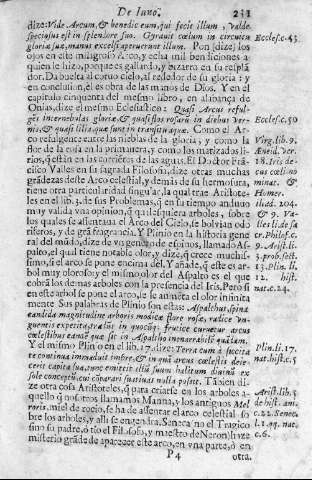 De Iuno.
231
dize: Vide Arcum, & benedic eum, qui fecit illum; valde
speciosus est in splendore suo. Gyrauit cœlum in circuitu
gloriæ suæ, manus excelsi aperuerunt illum. Pon (dize) los
ojos en este milagroso Arco, y echa mil bendiciones a
quien le hizo, porque es gallardo, y bizarro en su resplã
dor. Da buelta al coruo cielo, al rededor de su gloria: y
en conclusion, èl es obra de las manos de Dios. Y en el
capitulo cinquenta del mesmo libro, en alabança de
Onias, dize el mesmo Eclesiastico: Quasi Arcus reful-
gẽs inter nebulas gloriæ, & quasi flos rosarũ in diebus ver-
nis, & quasi lilia, quæ sunt in transitu aquæ. Como el Ar-
co refulgence entre las nieblas de la gloria; y como la
flor de la rosa en la primauera, y como los matizados li-
rios, q̃ estàn en las corriẽtes de las aguas. El Doctor Frã-
cisco Valles en su sagrada Filosofia, dize otras muchas
grãdezas deste Arco celestial, y demàs de su hermosura,
tiene otra particularidad singular, la qual trae Aristote-
les en el lib. 3. de sus Problemas, q̃ en su tiempo anduuo
muy valida vna opinion, q̃ qualesquiera arboles, sobre
los quales se assentaua el Arco del Cielo, se boluian odo
riferos, y de grã fragancia. Y Plinio en la historia gene
ral del mũdo, dize de vn genero de espinos, llamado As-
palto, el qual tiene notable olor, y dize, q̃ crece muchis-
simo, si el arco se pone encima del. Y añade, q̃ este es ar-
bol muy oloroso; y el mismo olor del Aspalto es el que
cobrã los demas arboles con la presencia del Iris. Pero si
en este arbol se pone el arco, se le aumẽta el olor infinita
mente. Sus palabras de Plinio son estas: Aspalthus, spina
candida magnitudine arboris modicæ flore rosæ, radice vn
guentis expetita, tradũt in quocũq; frutice curuetur arcus
cœlestibus eandẽ quæ sit in Aspaltho inenarrabilẽ quãdam.
Y el mismo Plinio en el lib. 17. dize: Terra cum à siccita
te continua immaduit imbre, & in quà arcus cœlestis deie-
cerit capita sua, tunc emittit illũ suum halitum diuinũ ex
sole conceptũ, cui cõparari suauitas nulla possit. Tãbien di-
ze otra cosa Aristoteles, q̃ para criarse en los arboles a-
quello q̃ nosotros llamamos Manna, y los antiguos Mel
roris, miel de rocio, se ha de assentar el arco celestial so
bre los arboles, y alli se engendra. Seneca no el Tragico
sino su padre, ò tio el Filosofo, y maestro de Neron, haze
misterio grãde de aparecer este arco, en vna parte, ò en
P 4
otra.
Eccles. c. 43.
Eccles. c. 50
Virg. lib. 9.
Æneid. ver.
18. Iris de-
cus cœli no
minat. &
Homer.
iliad. 204.
& 9. Va-
lles li. de sa
cr. Philos. c.
9. Arist. li.
3. prob. sect.
13. Plin. li.
12. hist.
nat. c. 24.
Plin. li. 17.
nat. hist. c. 5
Arist. lib. 5
de hist. ani.
c. 22. Senec.
l. 1. qq. nat.
c. 6.